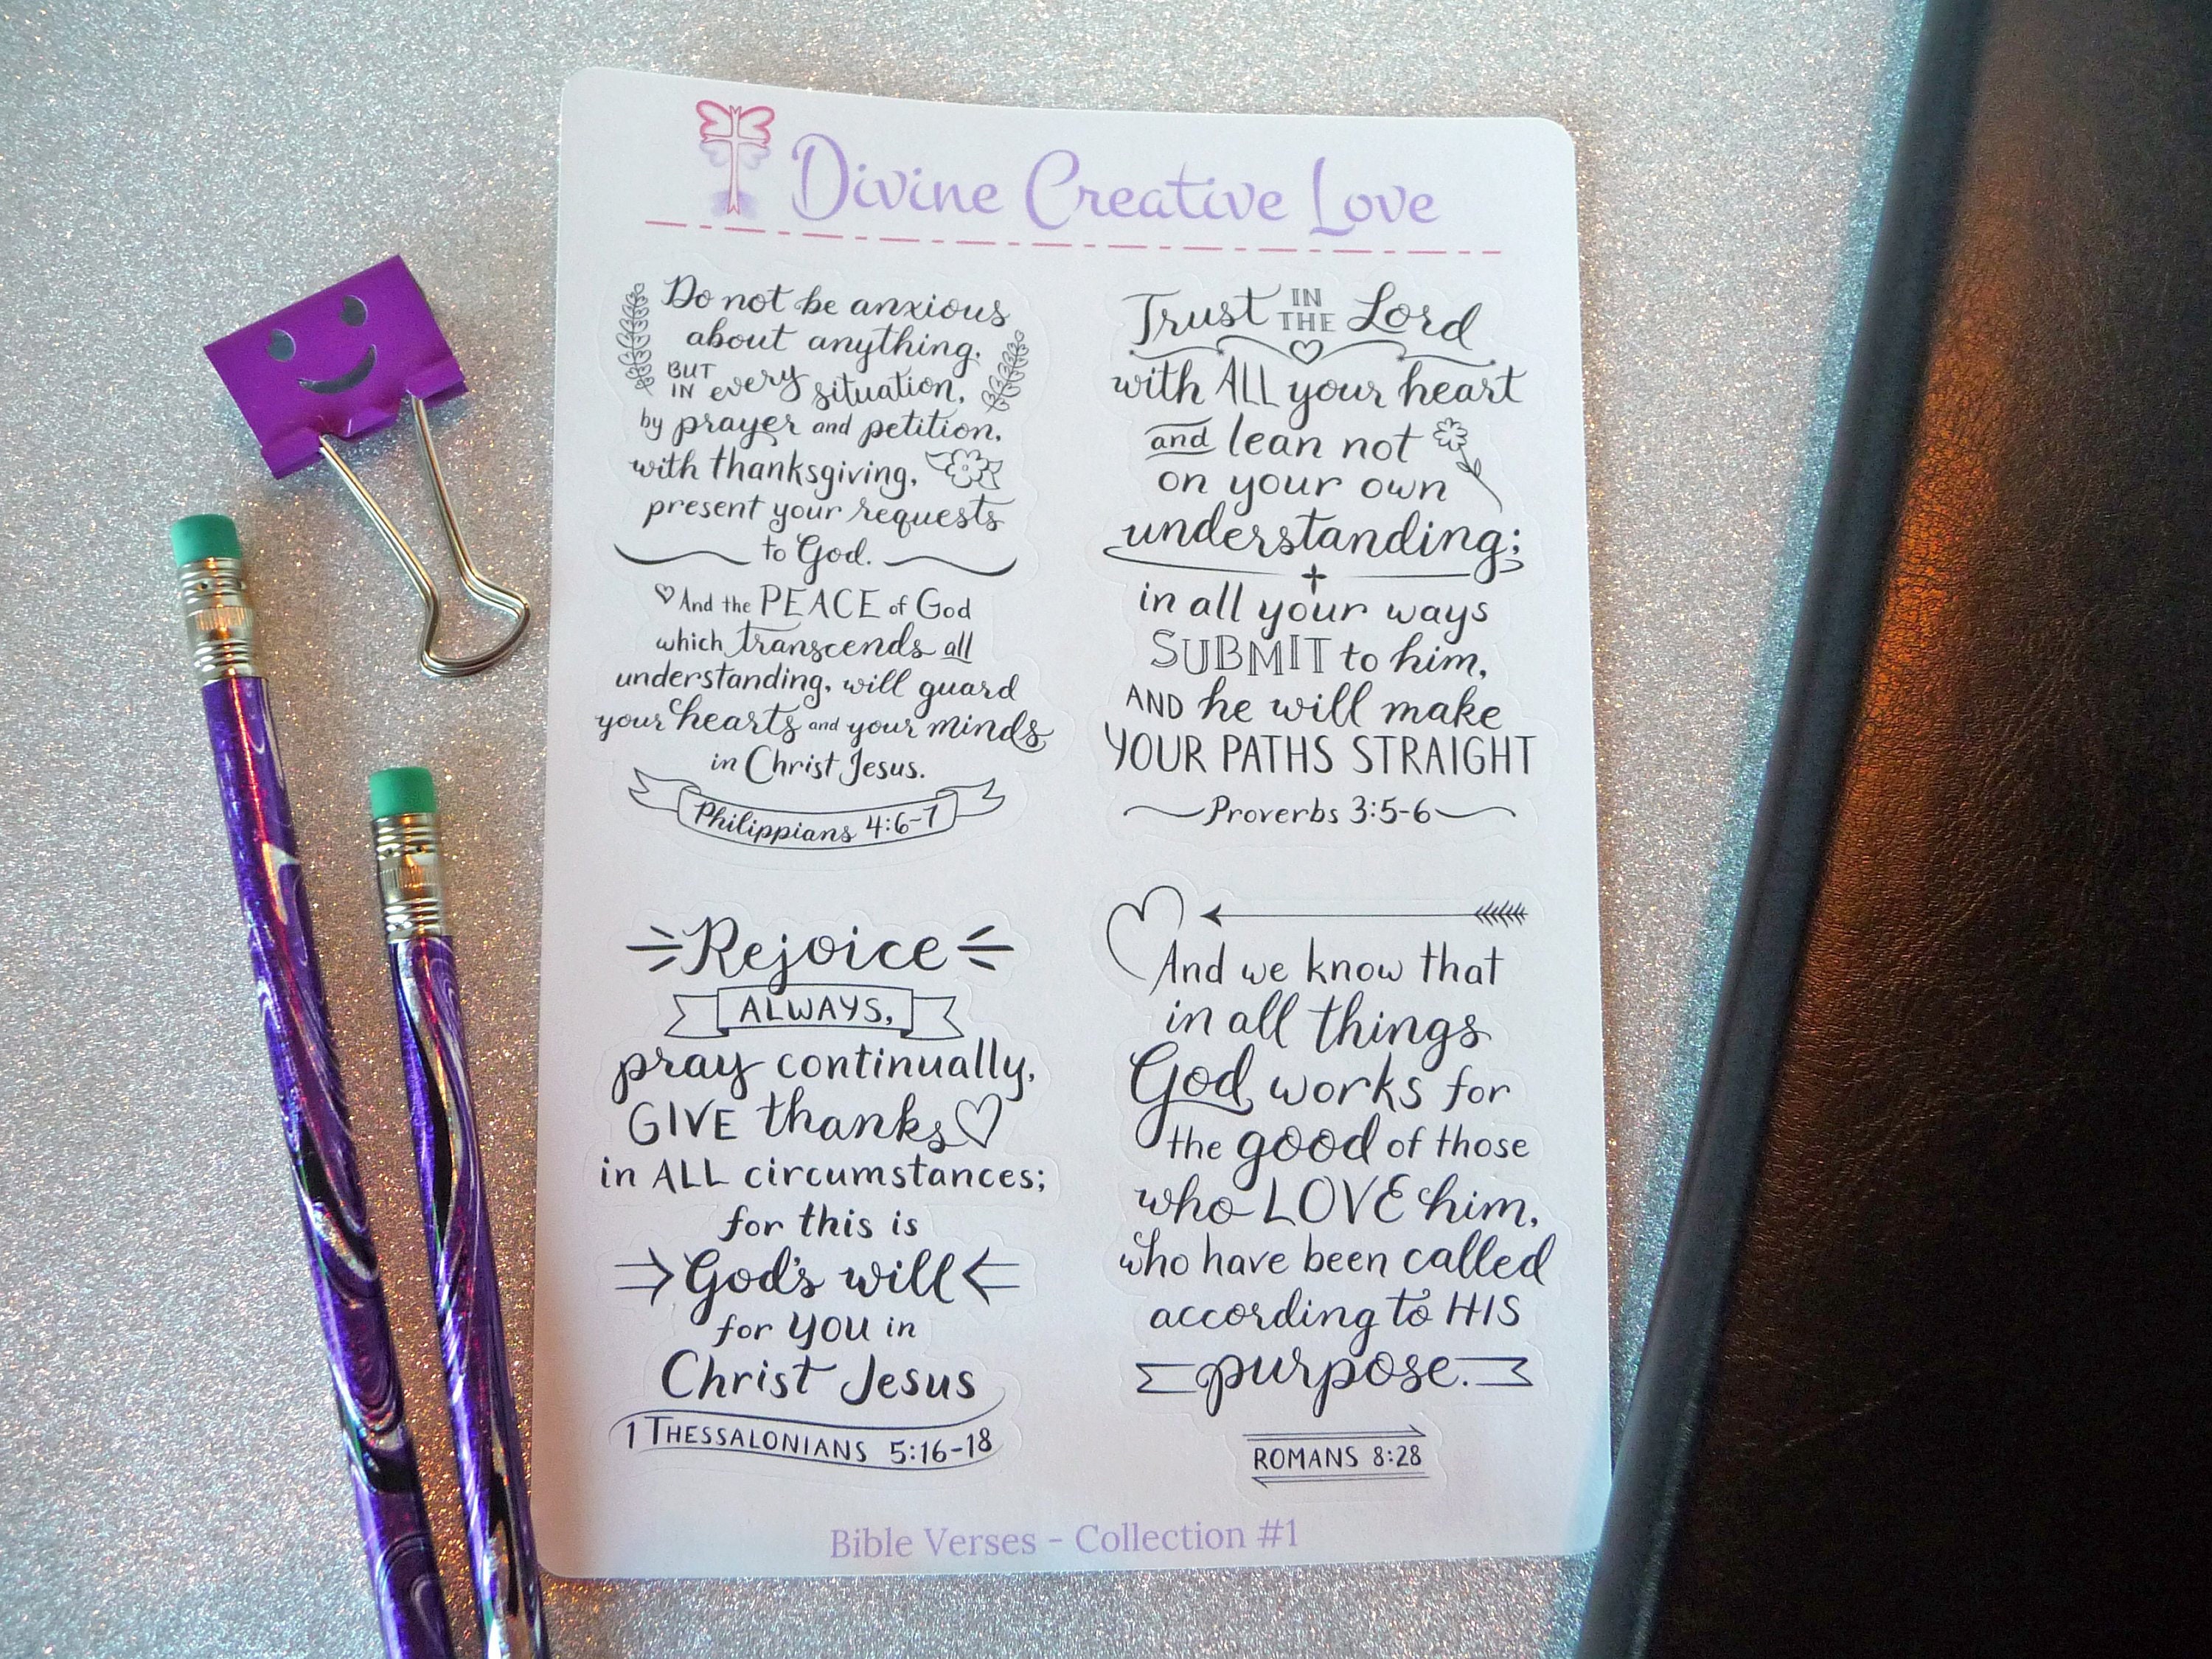 Divine Creative Love
Do not be anxious
about anything,
BUT IN every situation,
by prayer and petition,
with thanksgiving,
present your requests
to God.
And the PEACE of God
which transcends all
understanding, will guard
your hearts and your minds
in Christ Jesus.
Philippians 4:6-7
Trust IN THE Lord
with ALL your heart
and lean not
on your own
understanding;
in all your ways
SUBMIT to him,
AND he will make
YOUR PATHS STRAIGHT
Proverbs 3:5-6
Rejoice
ALWAYS,
pray continually,
GIVE thanks
in ALL circumstances;
for this is
God's will
for YOU in
Christ Jesus
1 THESSALONIANS 5:16-18
And we know that
in all things
God works for
the good of those
who LOVE him,
who have been called
according to HIS
purpose.
ROMANS 8:28
Bible Verses - Collection #1